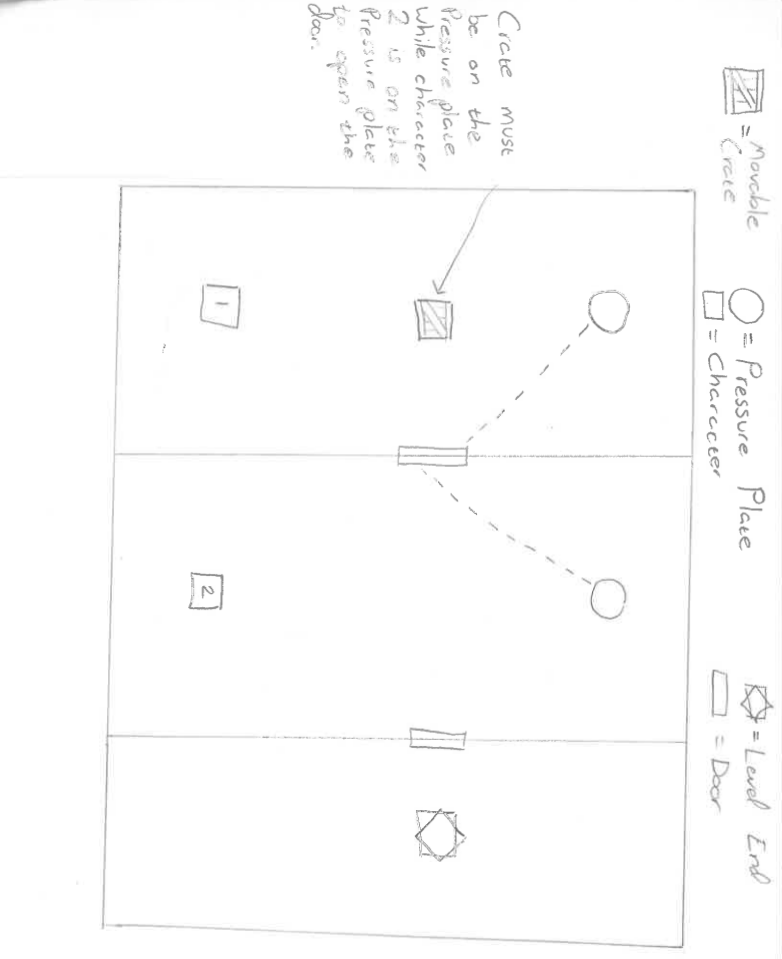 = Movable
Crate
= Pressure Plate
= Character
= Level End
= Door
Crate must
be on the
Pressure plate
while character
2 is on the
Pressure plate
to open the
door.
1
2